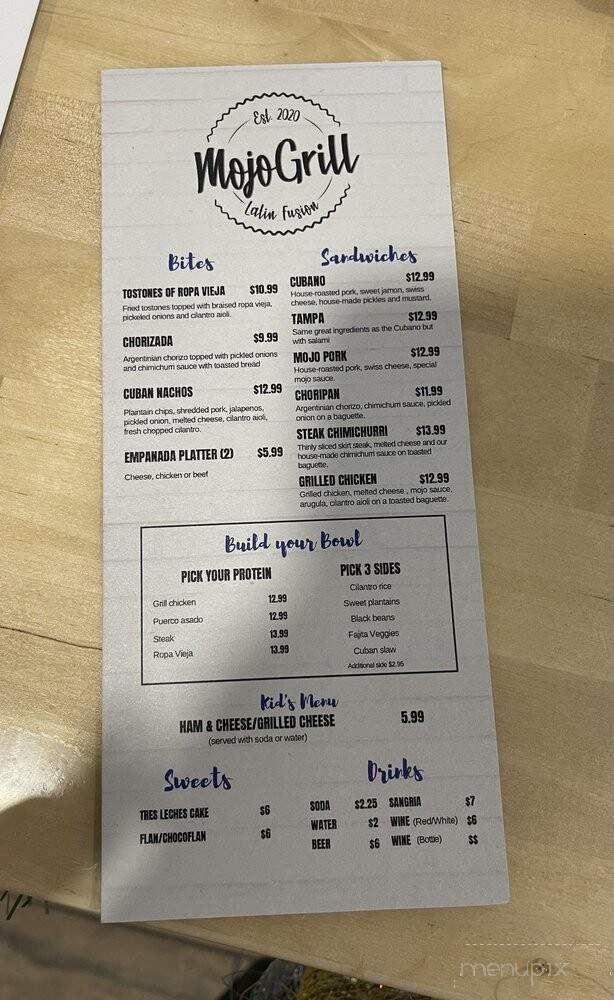 Est. 2020
MojoGrill
Latin Fusion
Bites
TOSTONES OF ROPA VIEJA $10.99
Fried tostones topped with braised ropa vieja,
pickeled onions and cilantro aioli.
CHORIZADA $9.99
Argentinian chorizo topped with pickled onions
and chimichurri sauce with toasted bread
CUBAN NACHOS $12.99
Plaintain chips, shredded pork, jalapenos,
pickled onion, melted cheese, cilantro aioli,
fresh chopped cilantro.
EMPANADA PLATTER (2) $5.99
Cheese, chicken or beef
Sandwiches
CUBANO $12.99
House-roasted pork, sweet jamon, swiss
cheese, house-made pickles and mustard.
TAMPA $12.99
Same great ingredients as the Cubano but
with salami
MOJO PORK $12.99
House-roasted pork, swiss cheese, special
mojo sauce.
CHORIPAN $11.99
Argentinian chorizo, chimichurri sauce, pickled
onion on a baguette.
STEAK CHIMICHURRI $13.99
Thinly sliced skirt steak, melted cheese and our
house-made chimichurri sauce on toasted
baguette.
GRILLED CHICKEN $12.99
Grilled chicken, melted cheese , mojo sauce,
arugula, cilantro aioli on a toasted baguette.
Build your Bowl
PICK YOUR PROTEIN
Grill chicken 12.99
Puerco asado 12.99
Steak 13.99
Ropa Vieja 13.99
PICK 3 SIDES
Cilantro rice
Sweet plantains
Black beans
Fajita Veggies
Cuban slaw
Additional side $2.95
Kid's Menu
HAM & CHEESE/GRILLED CHEESE 5.99
(served with soda or water)
Sweets
TRES LECHES CAKE $6
FLAN/CHOCOFLAN $6
Drinks
SODA $2.25
WATER $2
BEER $6
SANGRIA $7
WINE (Red/White) $6
WINE (Bottle) $$
menupix